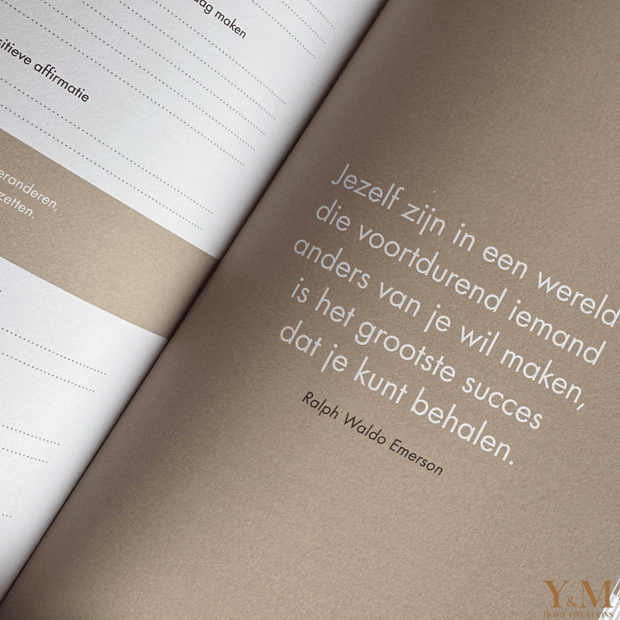 ag maken
sitieve affirmatie
eranderen,
zetten.
Jezelf zijn in een wereld
die voortdurend iemand
anders van je wil maken,
is het grootste succes
dat je kunt behalen.
Ralph Waldo Emerson
Y&M
HOME CREATIONS